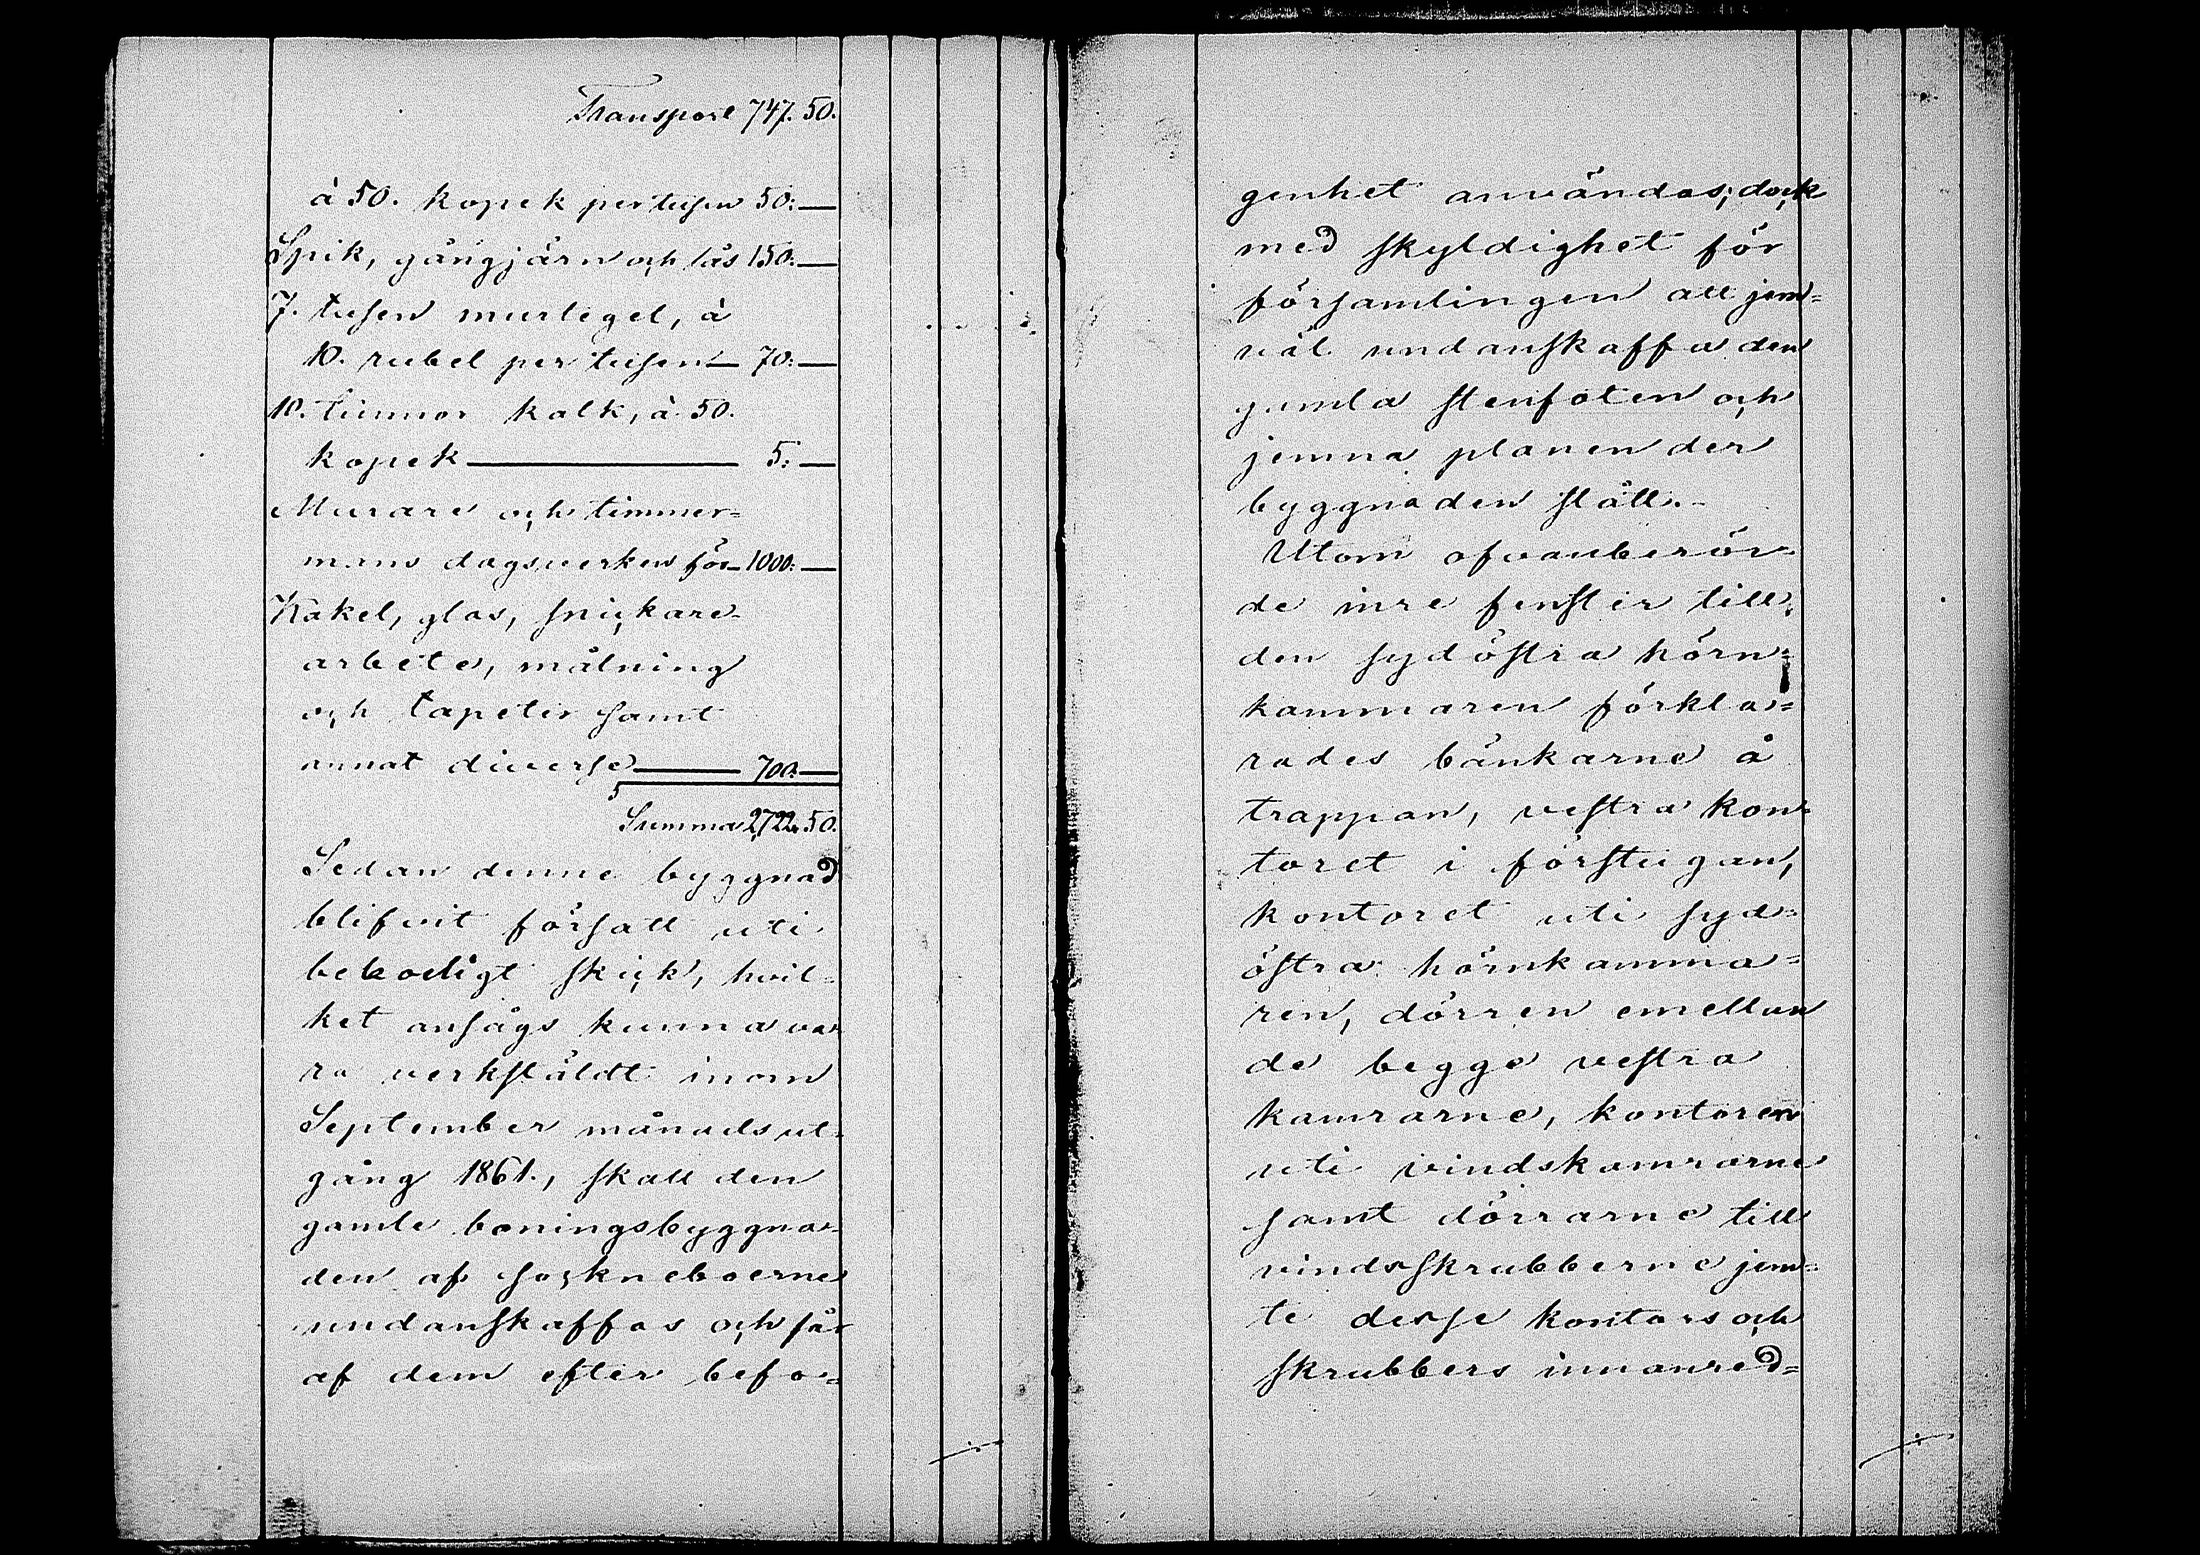 Transport 747. 50.
à 50. kopek per tusen 50: —
Spik, gångjärn och lås 150: —
7. tusen murtegel, à
10. rubel per tusen — 70: —
10. tunnor kalk, à 50.
kopek — 5: —
Murare och timmer-
mans dagsverken för — 1000: —
Kakel, glas, snickare-
arbete, målning
och tapeter samt
annat diverse — 700: —
Summa 2,722. 50.
Sedan denne byggnad
blifvit försatt uti
beboeligt skick, hvil-
ket ansågs kunna va-
ra verkstäldt inom
September månads ut-
gång 1861., skall den
gamle boningsbyggna-
den af sockneboerne
undanskaffas och får
af dem efter befo-
genhet användas; dock
med skyldighet för
församlingen att jem-
väl undanskaffa den
gamla stenfoten och
jemna planen der
byggnaden stått. -
Utom ofvanberör-
de inre fenster till
den sydöstra hörn-
kammaren förkla-
rades bänkarne å
trappan, vestra kon-
toret i förstugan,
kontoret uti syd-
östra hörnkamma-
ren, dörren emellan
de begge vestra
kamrarne, kontoren
uti vindskamrarne
samt dörrarne till
vindsskrubberne jem-
te desse kontors och
skrubbers innanred-